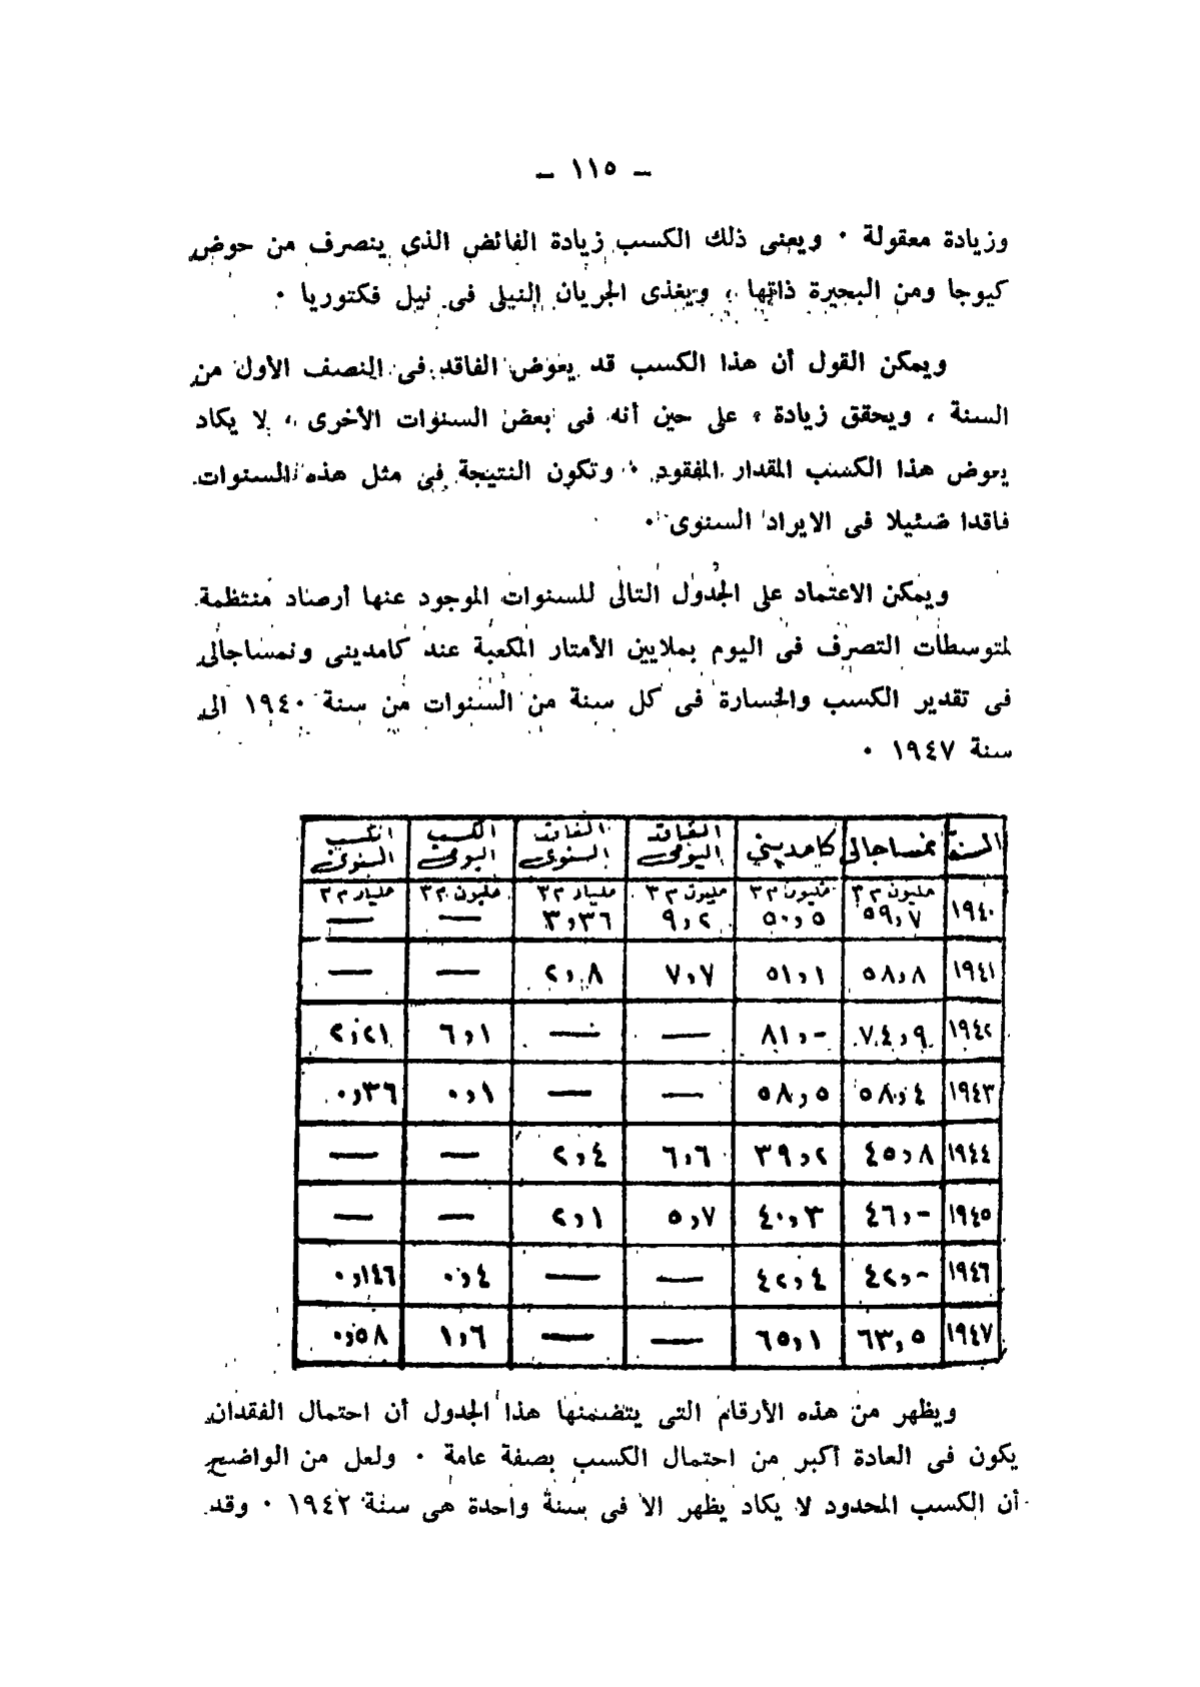 – ١١٥ –
وزيادة معقولة ٠ ويعنى ذلك الكسب زيادة الفائض الذى ينصرف من حوض
كيوجا ومن البحيرة ذاتها ، ويغذى الجريان النيلى فى نيل فكتوريا ٠
ويمكن القول أن هذا الكسب قد يعوض الفاقد فى النصف الأول من
السنة ، ويحقق زيادة ، على حين أنه فى بعض السنوات الأخرى ، لا يكاد
يعوض هذا الكسب المقدار المفقود ٠ وتكون النتيجة فى مثل هذه السنوات
فاقدا ضئيلا فى الايراد السنوى ٠
ويمكن الاعتماد على الجدول التالى للسنوات الموجود عنها أرصاد منتظمة
لمتوسطات التصرف فى اليوم بملايين الأمتار المكعبة عند كامدينى ونمساجالى
فى تقدير الكسب والخسارة فى كل سنة من السنوات من سنة ١٩٤٠ الى
سنة ١٩٤٧ ٠
السنة نمساجالى كامدينى الفاقد اليومى الفاقد السنوى الكسب اليومى الكسب السنوى
مليون م٣ مليون م٣ مليون م٣ مليار م٣ مليون م٣ مليار م٣
١٩٤٠ ٥٩,٧ ٥٠,٥ ٩,٢ ٣,٣٦ — —
١٩٤١ ٥٨,٨ ٥١,١ ٧,٧ ٢,٨ — —
١٩٤٢ ٧٤,٩ ٨١,- — — ٦,١ ٢,٢١
١٩٤٣ ٥٨,٤ ٥٨,٥ — — ٠,١ ٠,٣٦
١٩٤٤ ٤٥,٨ ٣٩,٢ ٦,٦ ٢,٤ — —
١٩٤٥ ٤٦,- ٤٠,٣ ٥,٧ ٢,١ — —
١٩٤٦ ٤٢,- ٤٢,٤ — — ٠,٤ ٠,١٤٦
١٩٤٧ ٦٣,٥ ٦٥,١ — — ١,٦ ٠,٥٨
ويظهر من هذه الأرقام التى يتضمنها هذا الجدول أن احتمال الفقدان
يكون فى العادة أكبر من احتمال الكسب بصفة عامة ٠ ولعل من الواضح
أن الكسب المحدود لا يكاد يظهر الا فى سنة واحدة هى سنة ١٩٤٢ ٠ وقد